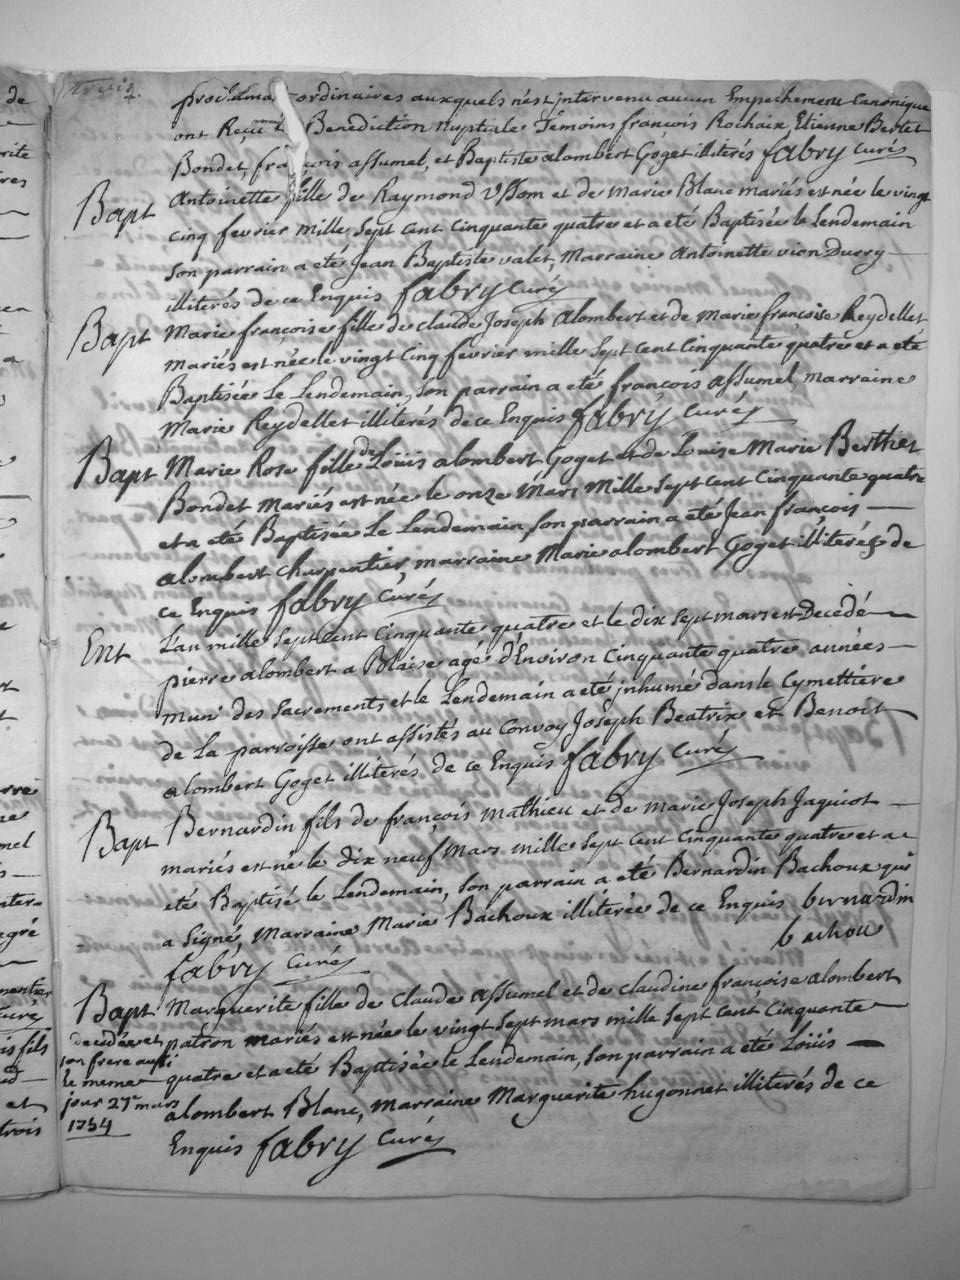 trois.
proclama ordinaires auxquels n'est intervenu aucun Empechement Canonique
ont Reçu Benediction nuptiale Temoins françois Rochaix, Etienne Bertet
Bondet, françois assumel, et Baptiste alombert Goget illiterés fabry Curé
Bapt Antoinette fille de Raymond et de Marie Blanc mariés est née le vingt
cinq fevrier mille Sept Cent Cinquante quatre et a eté Baptisée le Lendemain
Son parrain a eté Jean Baptiste valet, Marraine Antoinette vion Durry
illiterés de ce Enquis fabry Curé
Bapt Marie françoise fille de claude Joseph Alombert et de Marie françoise Reydellet
Mariés est née le vingt Cinq fevrier mille Sept Cent Cinquante quatre et a eté
Baptisée Le Lendemain, Son parrain a eté françois assumel, marraine
Marie Reydellet illiterés de ce Enquis fabry Curé
Bapt Marie Rose fille de Loüis alombert Goget et de Louise Marie Berthet
Bondet Mariés est née le onze Mars Mille Sept Cent Cinquante quatre
et a eté Baptisée Le Lendemain, Son parrain a eté Jean françois
alombert Charpentier, marraine Marie alombert Goget illiterés de
ce Enquis fabry Curé
Ent L'an mille Sept Cent Cinquante quatre et le dix Sept mars est Decedé
pierre alombert a Blaise agé d'Environ Cinquante quatre années
muni des Sacrements et le Lendemain a eté inhumé dans le Cymettiere
de La parroisse ont assistés au Convoy Joseph Beatrix et Benoit
alombert Goget illiterés de ce Enquis fabry Curé
Bapt Bernardin fils de françois Mathieu et de Marie Joseph Jaquiot
mariés est né le dix neuf Mars mille Sept Cent Cinquante quatre et a
eté Baptisé le Lendemain, Son parrain a eté Bernardin Bachoux qui
a Signé, Marraine Marie Bachoux illiterée de ce Enquis bernardin
bachou
fabry Curé
Bapt Marguerite fille de Claude assumel et de claudine françoise alombert
patron mariés est née le vingt Sept mars mille Sept Cent Cinquante
quatre et a eté Baptisée le Lendemain, Son parrain a eté Loüis
alombert Blanc, marraine Marguerite hugonnet illiterés de ce
Enquis fabry Curé
decedée et
son frere aussi
le meme
jour 27e mars
1754